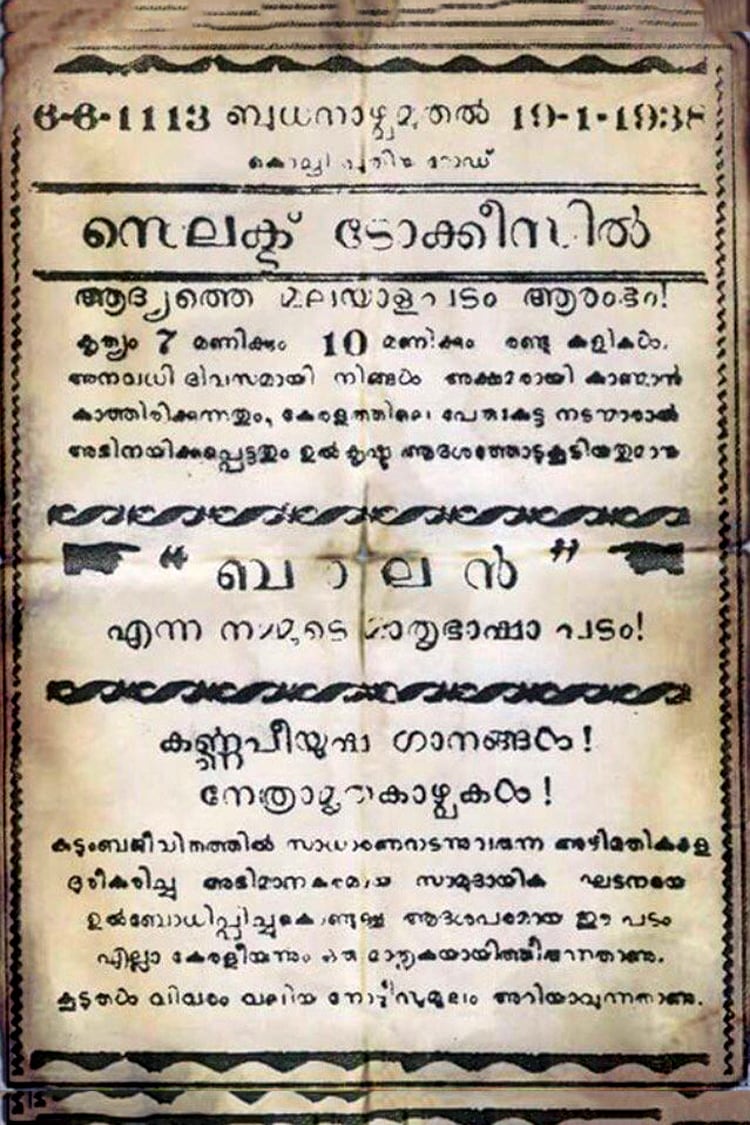 6-6-1113 ബുധനാഴ്ച മുതൽ 19-1-1938
കൊച്ചി പുതിയ റോഡ്
സെലക്റ്റ് ടോക്കീസിൽ
ആദ്യത്തെ മലയാളപടം ആരംഭം!
കൃത്യം 7 മണിക്കും 10 മണിക്കും രണ്ടു കളികൾ.
അനവധി ദിവസമായി നിങ്ങൾ അക്ഷമരായി കാണ്മാൻ
കാത്തിരിക്കുന്നതും, കേരളത്തിലെ പേരുകേട്ട നടന്മാരാൽ
അഭിനയിക്കപ്പെട്ടതും ഉൽകൃഷ്ട ആദർശത്തോടുകൂടിയതുമായ
“ബാലൻ”
എന്ന നമ്മുടെ മാതൃഭാഷാ പടം!
കർണ്ണപീയൂഷ ഗാനങ്ങൾ!
നേത്രാമൃതകാഴ്ചകൾ!
കുടുംബജീവിതത്തിൽ സാധാരണനടന്നുവരുന്ന അഴിമതികളെ
ദൂരീകരിച്ചു അഭിമാനകരമായ സാമുദായിക ഘടനയെ
ഉൽബോധിപ്പിച്ചുകൊണ്ടുള്ള ആദർശപരമായ ഈ പടം
എല്ലാ കേരളീയനും ഒരു മാതൃകയായിത്തീരുന്നതാണു.
കൂടുതൽ വിവരം വലിയ നോട്ടീസുമൂലം അറിയാവുന്നതാണു.